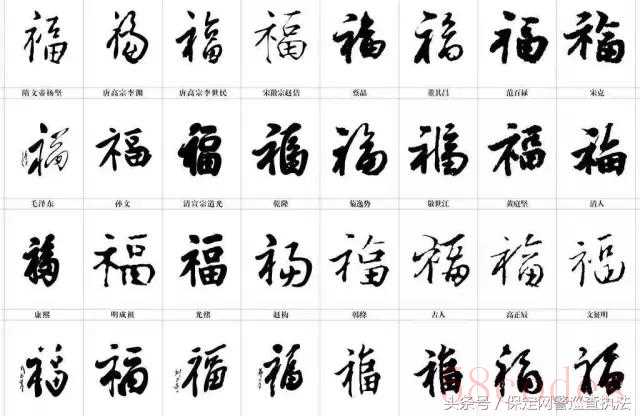 福 福 福 福 福 福 福 福
隋文帝杨坚 唐高宗李渊 唐高宗李世民 宋徽宗赵佶 蔡晶 董其昌 范百禄 宋克
福 福 福 福 福 福 福 福
毛泽东 孙文 清宣宗道光 乾隆 菊逸势 敬世江 黄庭坚 清人
福 福 福 福 福 福 福 福
康熙 明成祖 光绪 赵构 韩绛 古人 高正辰 文征明
福 福 福 福 福 福 福 福
头条号／保定网警巡查执法